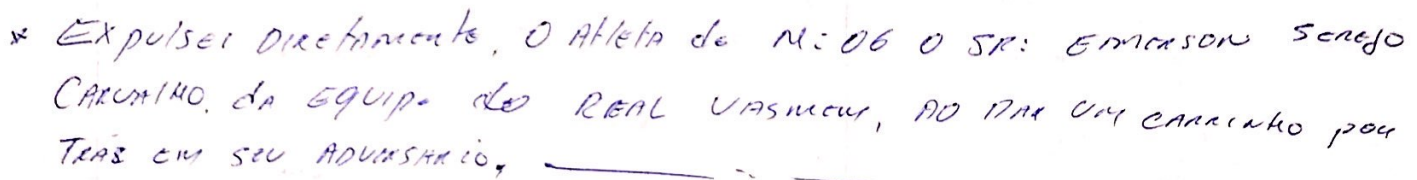 * Expulsei Diretamente, O Atleta de N: 06 O SR: EMERSON SEREJO
CARVALHO, da EQUIPE do REAL VASMEM, AO DAR UM CARRINHO POR
TRÁS EM SEU ADVERSARIO.